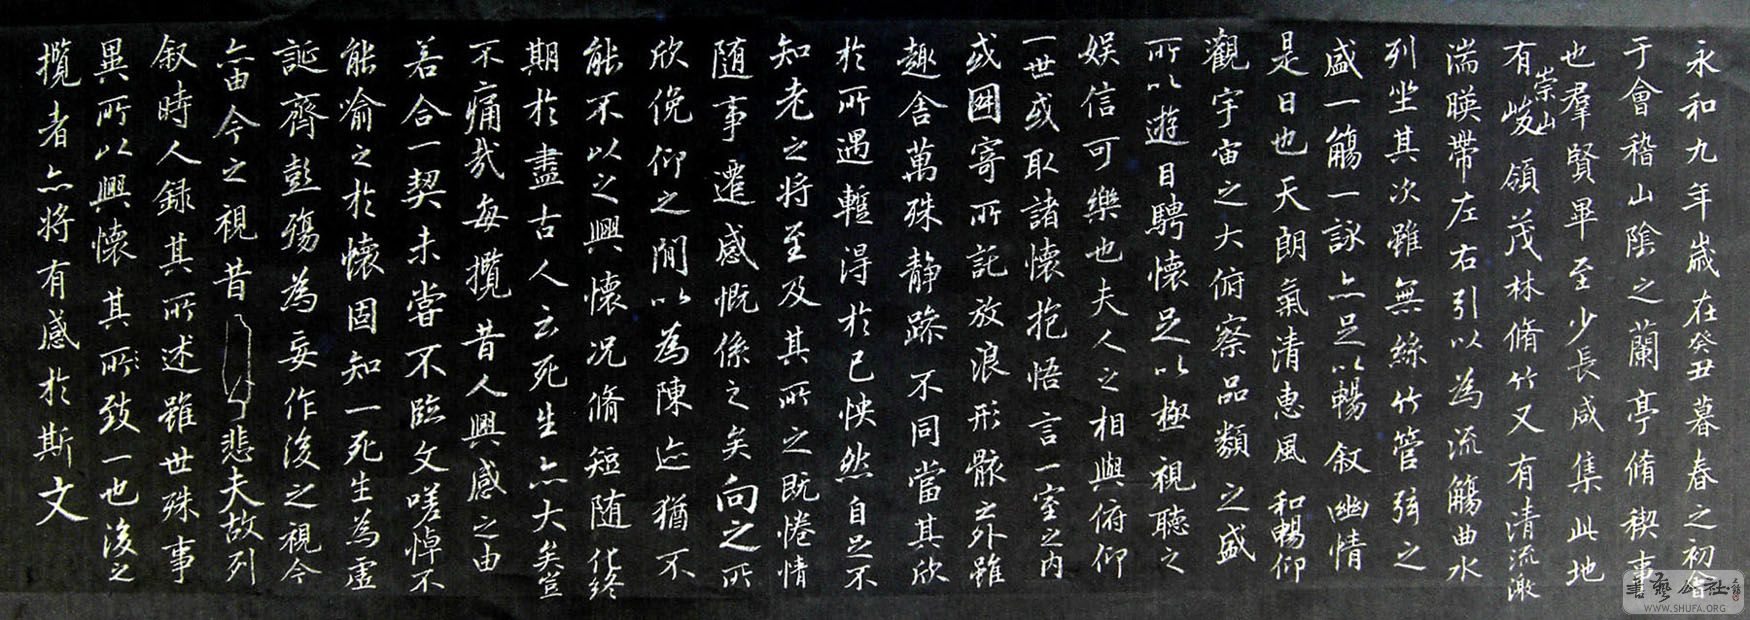 永和九年歲在癸丑暮春之初會
于會稽山陰之蘭亭脩稧事
也羣賢畢至少長咸集此地
有崇山峻領茂林脩竹又有清流激
湍暎帶左右引以為流觴曲水
列坐其次雖無絲竹管弦之
盛一觴一詠亦足以暢叙幽情
是日也天朗氣清惠風和暢仰
觀宇宙之大俯察品類之盛
所以遊目騁懷足以極視聽之
娱信可樂也夫人之相與俯仰
一世或取諸懷抱悟言一室之內
或因寄所託放浪形骸之外雖
趣舍萬殊静躁不同當其欣
於所遇蹔得於己怏然自足不
知老之將至及其所之既惓情
随事遷感慨係之矣向之所
欣俛仰之閒以為陳迹猶不
能不以之興懷况脩短随化終
期於盡古人云死生亦大矣豈
不痛哉每攬昔人興感之由
若合一契未嘗不臨文嗟悼不
能喻之於懷固知一死生為虛
誕齊彭殤為妄作後之視今
亦由今之視昔悲夫故列
叙時人録其所述雖世殊事
異所以興懷其所致一也後之
攬者亦將有感於斯文
書藝公社
WWW.SHUFA.ORG